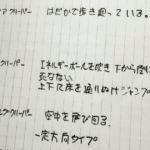 アクリーパー はだかで歩き回っている。
クリーパー エネルギーボールを吹き 下から
死なない
上下に床を通りぬけジャンプ
クリーパー 空中を飛び回る。
一定方向タイプ